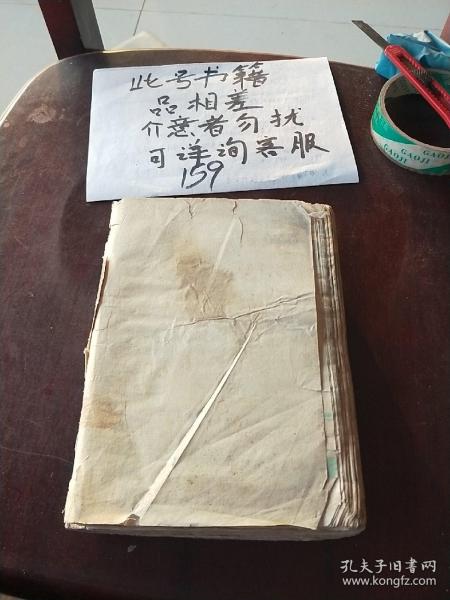 此号书籍
品相差
介意者勿扰
可详询客服
159
GAOJI
GAOJI
孔夫子旧书网
www.kongfz.com